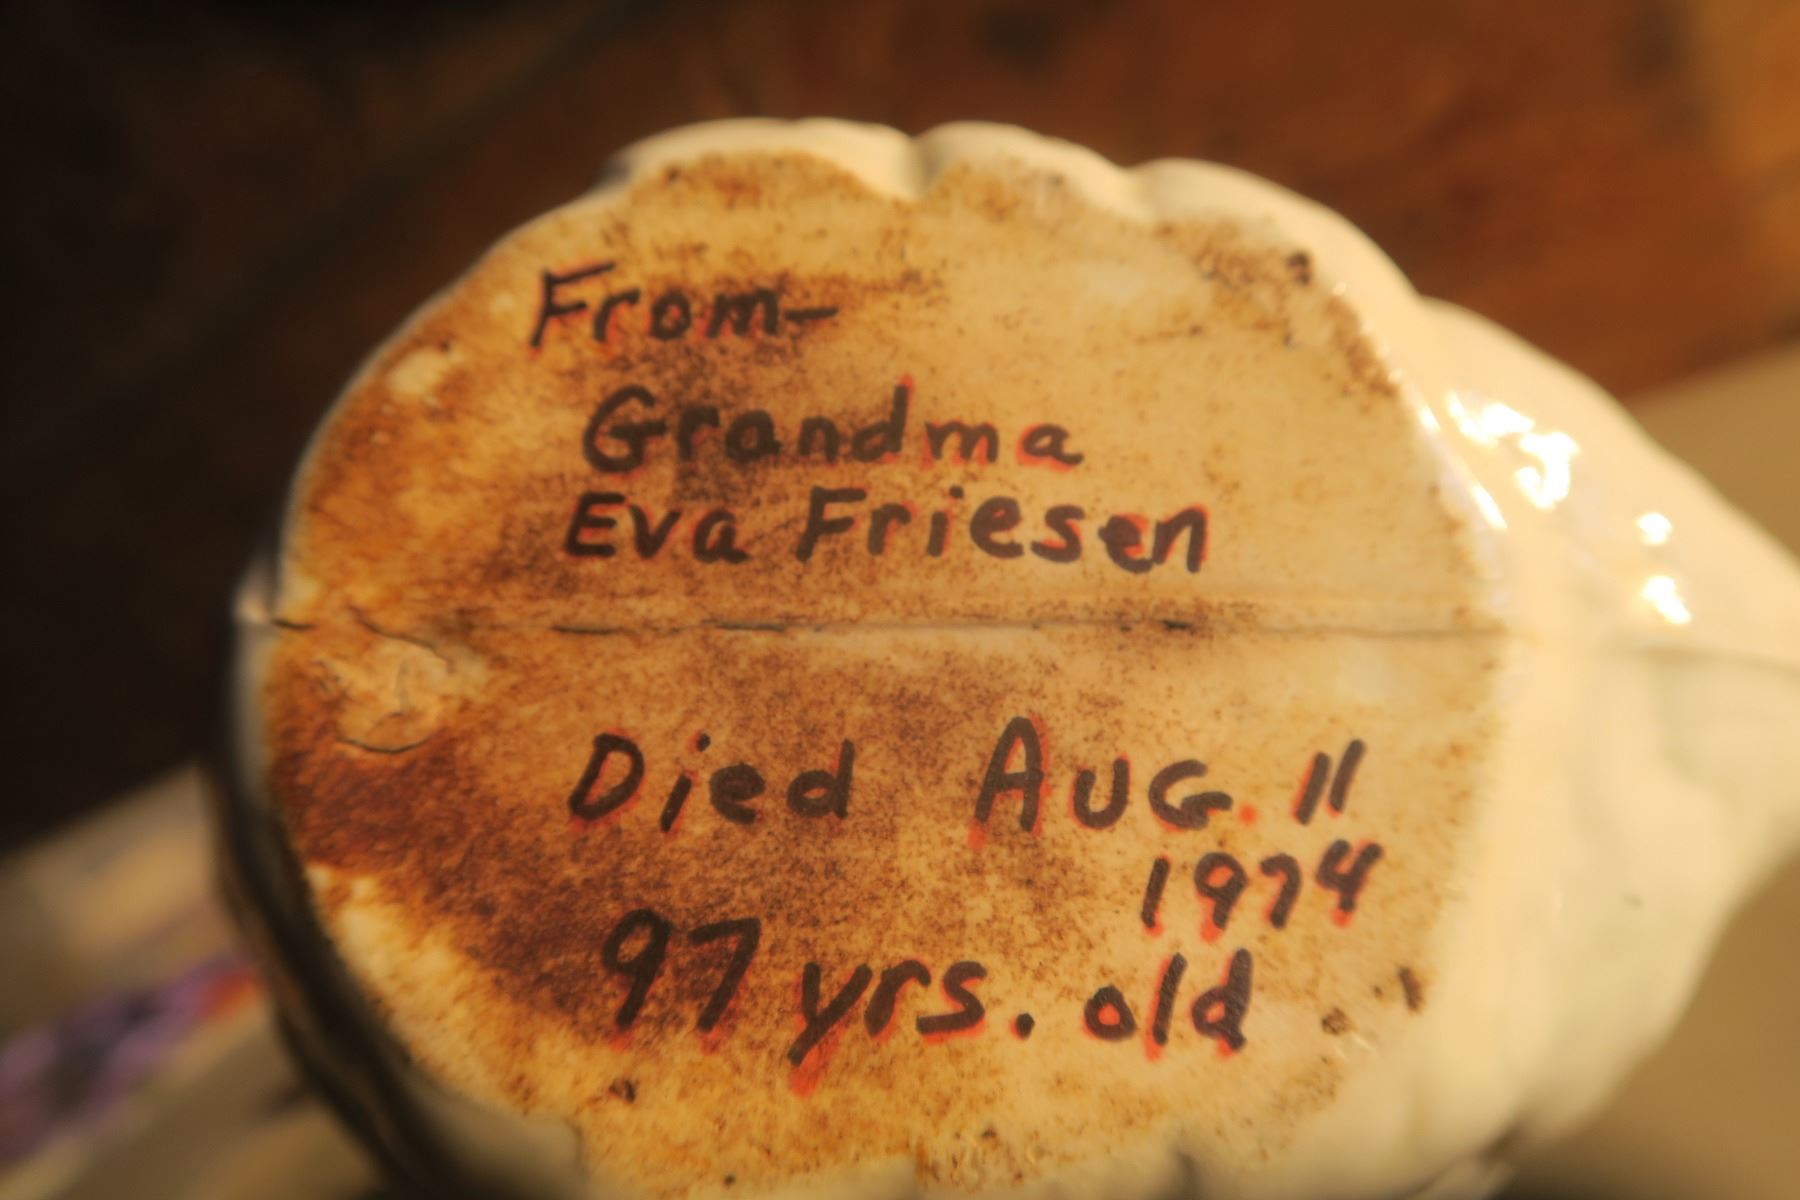 From-
Grandma
Eva Friesen
Died AUG. 11
1974
97 yrs. old